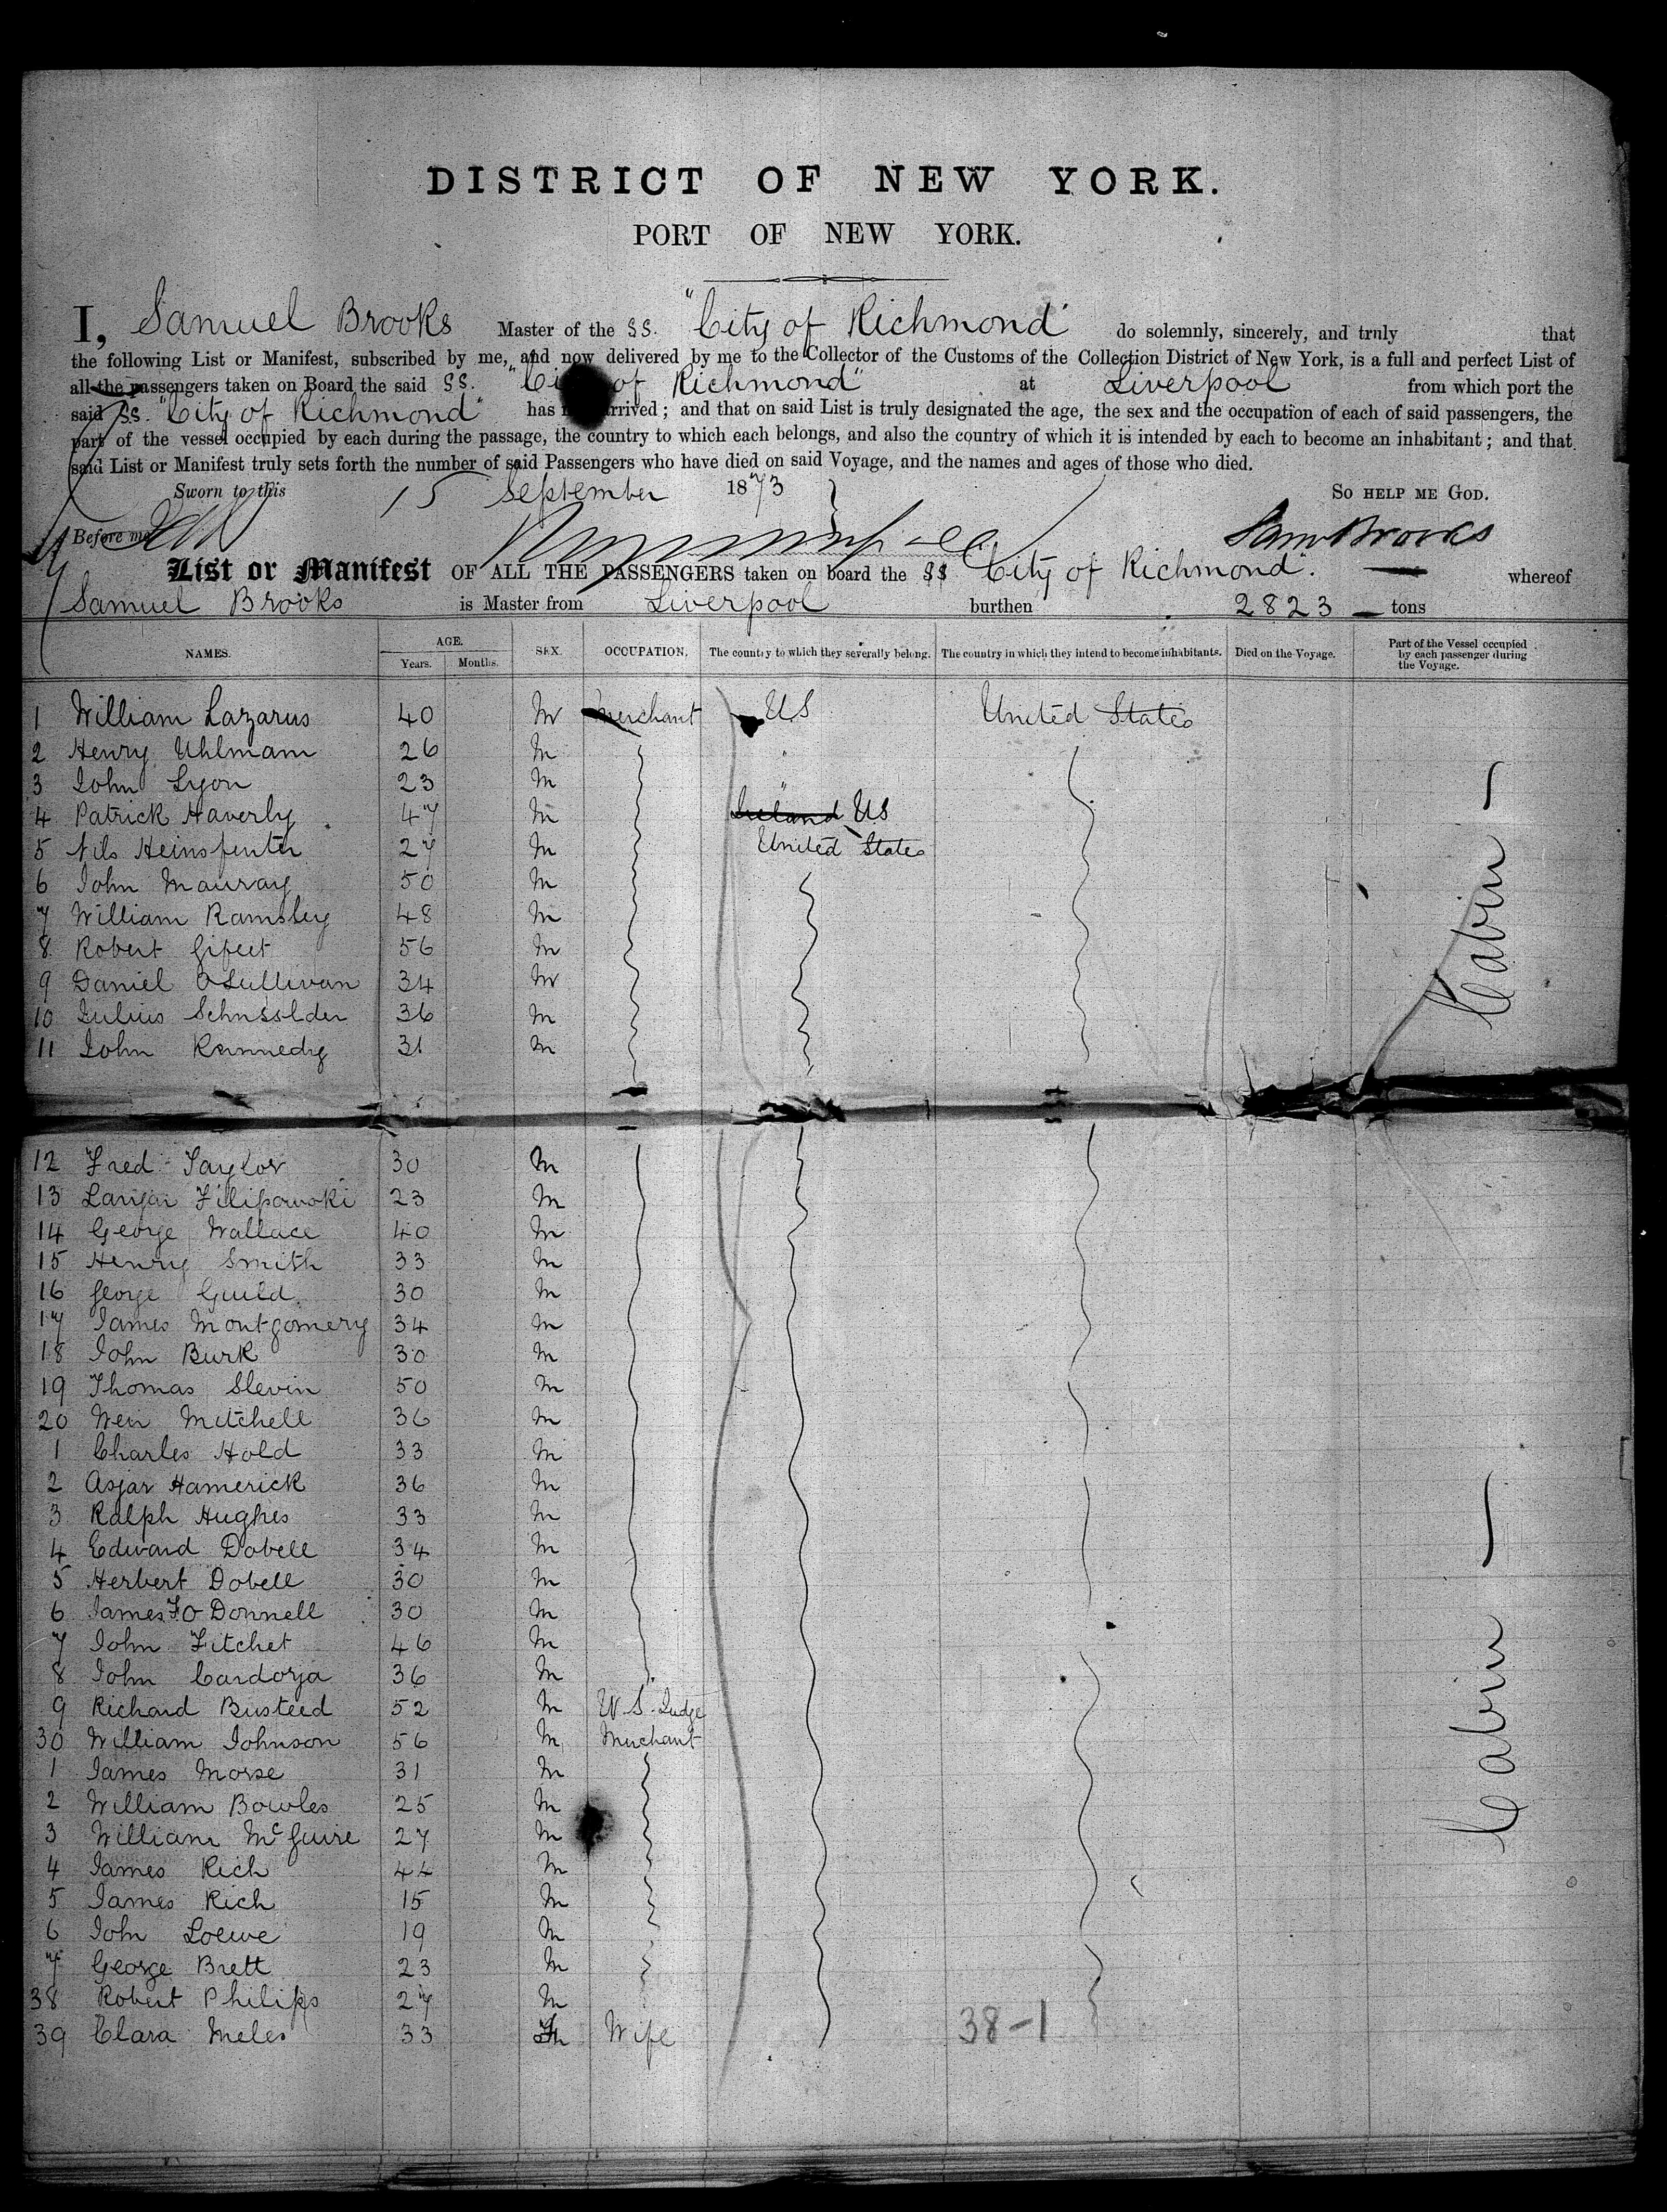 DISTRICT OF NEW YORK.
PORT OF NEW YORK.
I, Samuel Brooks Master of the SS. "City of Richmond" do solemnly, sincerely, and truly that
the following List or Manifest, subscribed by me, and now delivered by me to the Collector of the Customs of the Collection District of New York, is a full and perfect List of
all the passengers taken on Board the said SS. "City of Richmond" at Liverpool from which port the
said SS. "City of Richmond" has arrived; and that on said List is truly designated the age, the sex and the occupation of each of said passengers, the
part of the vessel occupied by each during the passage, the country to which each belongs, and also the country of which it is intended by each to become an inhabitant; and that
said List or Manifest truly sets forth the number of said Passengers who have died on said Voyage, and the names and ages of those who died.
Sworn to this 15 September 1873 SO HELP ME GOD.
Before me Saml Brooks
List or Manifest OF ALL THE PASSENGERS taken on board the SS City of Richmond. whereof
Samuel Brooks is Master from Liverpool burthen 2823 tons
NAMES. AGE. Years. Months. SEX. OCCUPATION. The country to which they severally belong. The country in which they intend to become inhabitants. Died on the Voyage. Part of the Vessel occupied by each passenger during the Voyage.
1 William Lazarus 40 M Merchant US United States
2 Henry Uhlmann 26 M "
3 John Lyon 23 M
4 Patrick Haverly 47 M Ireland US
5 Nils 27 M United States
6 John Mauray 50 M
7 William Ramsley 48 M
8 Robert 56 M
9 Daniel OSullivan 34 M
10 Julius 36 M
11 John Kennedy 31 M
Cabin
12 Fred Taylor 30 M
13 Filipowski 23 M
14 George Wallace 40 M
15 Henry Smith 33 M
16 George Guild 30 M
17 James Montgomery 34 M
18 John Burk 30 M
19 Thomas Slevin 50 M
20 Wm Mitchell 36 M
1 Charles Hold 33 M
2 Asjar Hamerick 36 M
3 Ralph Hughes 33 M
4 Edward Dobell 34 M
5 Herbert Dobell 30 M
6 James F O Donnell 30 M
7 John Fitchet 46 M
8 John Cardoza 36 M
9 Richard Busteed 52 M U.S. Judge
30 William Johnson 56 M Merchant
1 James Morse 31 M
2 William Bowles 25 M
3 William McGuire 27 M
4 James Rich 44 M
5 James Rich 15 M
6 John Loewe 19 M
7 George Brett 23 M
38 Robert Philips 27 M
39 Clara Meles 33 F Wife 38-1
Cabin